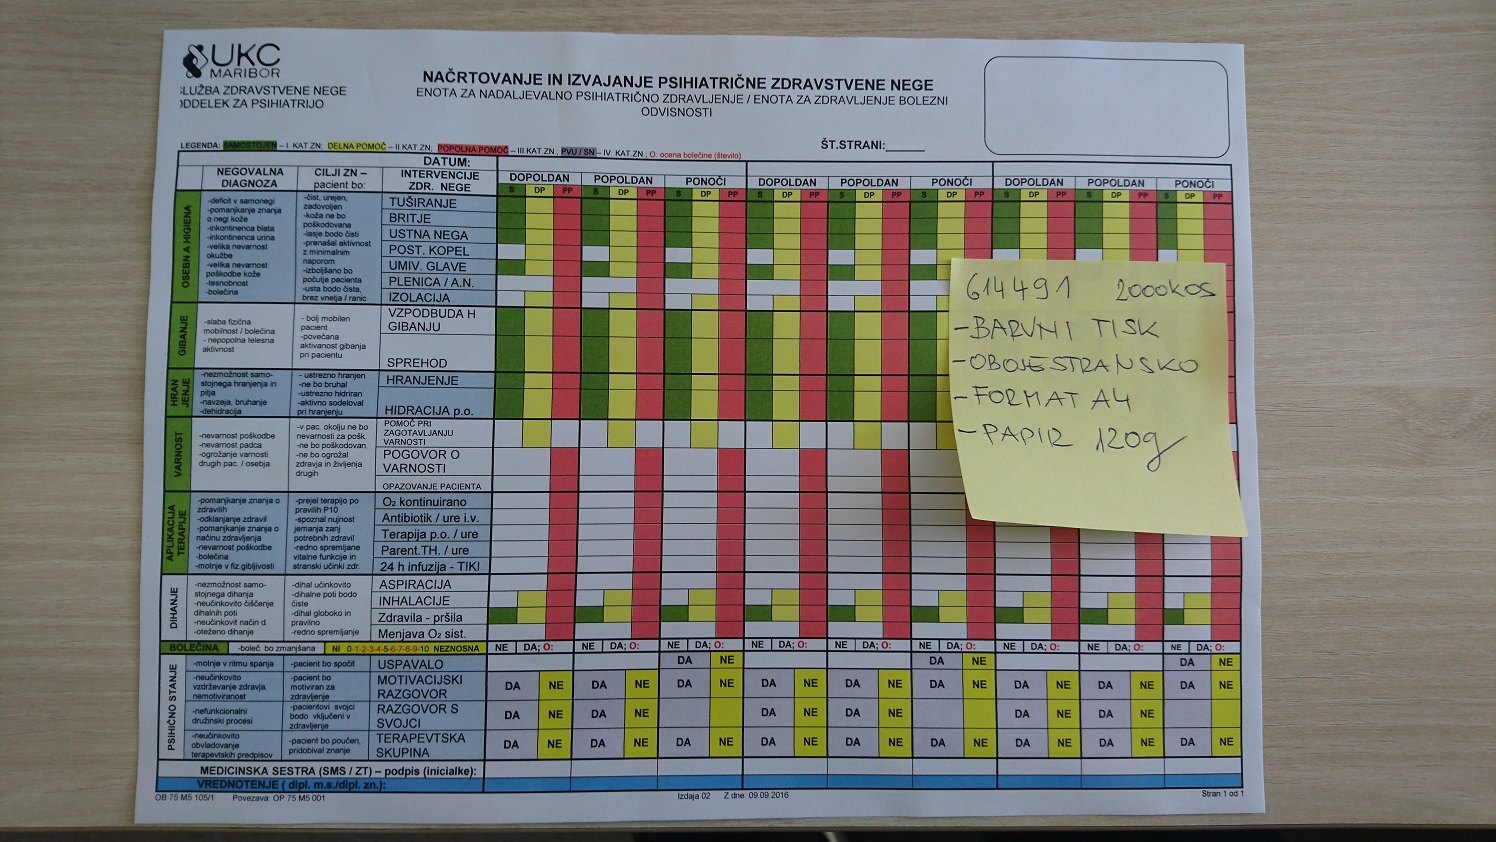 UKC
MARIBOR
SLUŽBA ZDRAVSTVENE NEGE
ODDELEK ZA PSIHIATRIJO
NAČRTOVANJE IN IZVAJANJE PSIHIATRIČNE ZDRAVSTVENE NEGE
ENOTA ZA NADALJEVALNO PSIHIATRIČNO ZDRAVLJENJE / ENOTA ZA ZDRAVLJENJE BOLEZNI
ODVISNOSTI
LEGENDA: SAMOSTOJEN – I. KAT.ZN; DELNA POMOČ – II.KAT.ZN; POPOLNA POMOČ – III.KAT.ZN.; PVU / SN – IV. KAT.ZN.; O: ocena bolečine (število)
ŠT.STRANI:______
DATUM:
NEGOVALNA DIAGNOZA
CILJI ZN – pacient bo:
INTERVENCIJE ZDR. NEGE
DOPOLDAN POPOLDAN PONOČI DOPOLDAN POPOLDAN PONOČI DOPOLDAN POPOLDAN PONOČI
S DP PP S DP PP S DP PP S DP PP S DP PP S DP PP S DP PP S DP PP S DP PP
OSEBNA HIGIENA
-deficit v samonegi
-pomanjkanje znanja
o negi kože
-inkontinenca blata
-inkontinenca urina
-velika nevarnost
okužbe
-velika nevarnost
poškodbe kože
-tesnobnost
-bolečina
-čist, urejen,
zadovoljen
-koža ne bo
poškodovana
-lasje bodo čisti
-prenašal aktivnost
z minimalnim
naporom
-izboljšano bo
počutje pacienta
-usta bodo čista,
brez vnetja / ranic
TUŠIRANJE
BRITJE
USTNA NEGA
POST. KOPEL
UMIV. GLAVE
PLENICA / A.N.
IZOLACIJA
GIBANJE
-slaba fizična
mobilnost / bolečina
- nepopolna telesna
aktivnost
- bolj mobilen
pacient
-povečana
aktivanost gibanja
pri pacientu
VZPODBUDA H
GIBANJU
SPREHOD
HRANJENJE
-nezmožnost samo-
stojnega hranjenja in
pitja
-navzeja, bruhanje
-dehidracija
- ustrezno hranjen
-ne bo bruhal
-ustrezno hidriran
-aktivno sodeloval
pri hranjenju
HRANJENJE
HIDRACIJA p.o.
VARNOST
-nevarnost poškodbe
-nevarnost padca
-ogrožanje varnosti
drugih pac. / osebja
-v pac. okolju ne bo
nevarnosti za pošk.
-ne bo poškodovan.
-ne bo ogrožal
zdravja in življenja
drugih
POMOČ PRI
ZAGOTAVLJANJU
VARNOSTI
POGOVOR O
VARNOSTI
OPAZOVANJE PACIENTA
APLIKACIJA TERAPIJE
-pomanjkanje znanja o
zdravilih
-odklanjanje zdravil
-pomanjkanje znanja o
načinu zdravljenja
-nevarnost poškodbe
-bolečina
-motnje v fiz.gibljivosti
-prejel terapijo po
pravilih P10
-spoznal nujnost
jemanja zanj
potrebnih zdravil
-redno spremljane
vitalne funkcije in
stranski učinki zdr.
O₂ kontinuirano
Antibiotik / ure i.v.
Terapija p.o. / ure
Parent.TH. / ure
24 h infuzija - TIKI
DIHANJE
-nezmožnost samo-
stojnega dihanja
-neučinkovito čiščenje
dihalnih poti
-neučinkovit način d.
-oteženo dihanje
-dihal učinkovito
-dihalne poti bodo
čiste
-dihal globoko in
pravilno
-redno spremljanje
ASPIRACIJA
INHALACIJE
Zdravila - pršila
Menjava O₂ sist.
BOLEČINA -boleč. bo zmanjšana NI 0-1-2-3-4-5-6-7-8-9-10 NEZNOSNA NE DA; O: NE DA; O: NE DA; O: NE DA; O: NE DA; O: NE DA; O: NE DA; O: NE DA; O: NE DA; O:
PSIHIČNO STANJE
-motnje v ritmu spanja -pacient bo spočit USPAVALO DA NE DA NE DA NE
-neučinkovito
vzdrževanje zdravja,
nemotiviranost
-pacient bo
motiviran za
zdravljenje
MOTIVACIJSKI
RAZGOVOR
DA NE DA NE DA NE DA NE DA NE DA NE DA NE DA NE DA NE
-nefunkcionalni
družinski procesi
-pacientovi svojci
bodo vključeni v
zdravljenje
RAZGOVOR S
SVOJCI
DA NE DA NE DA NE DA NE DA NE DA NE
-neučinkovito
obvladovanje
terapevtskih predpisov
-pacient bo poučen,
pridobival znanje
TERAPEVTSKA
SKUPINA
DA NE DA NE DA NE DA NE DA NE DA NE DA NE DA NE DA NE
MEDICINSKA SESTRA (SMS / ZT) – podpis (inicialke):
VREDNOTENJE ( dipl. m.s./dipl. zn.):
OB 75 M5 105/1 Povezava: OP 75 M5 001 Izdaja 02 Z dne: 09.09.2016 Stran 1 od 1
614491 2000KOS
-BARVNI TISK
-OBOJESTRANSKO
-FORMAT A4
-PAPIR 120g